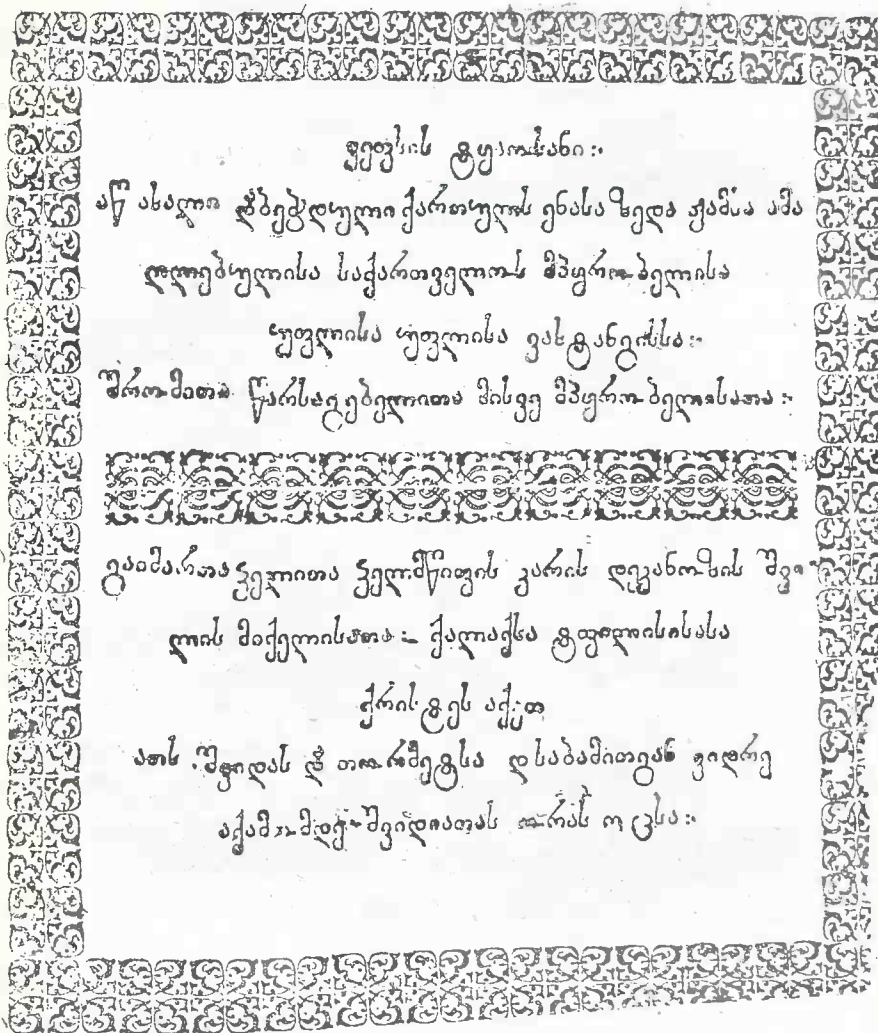 ვეფხის ტყაოსანი჻
აწ ახალი დ̃ბეჭდული ქართულს ენასა ზედა ჟამსა ამა
ღლებულისა საქართველოს მპყრობელისა
უფლისა უფლისა ვახტანგისსა჻
შრომითა წარსაგებელითა მისვე მპყრობელისათა჻
გაიმართა ჴელითა ჴელმწიფის კარის დეკანოზის შვი
ლის მიქელისათა჻ ქალაქსა ტფილისისასა
ქრისტეს აქეთ
ათს შვიდას დ̃ თორმეტსა დსაბამითგან ვიდრე
აქამომდე შვიდიათას ორას ოცსა჻